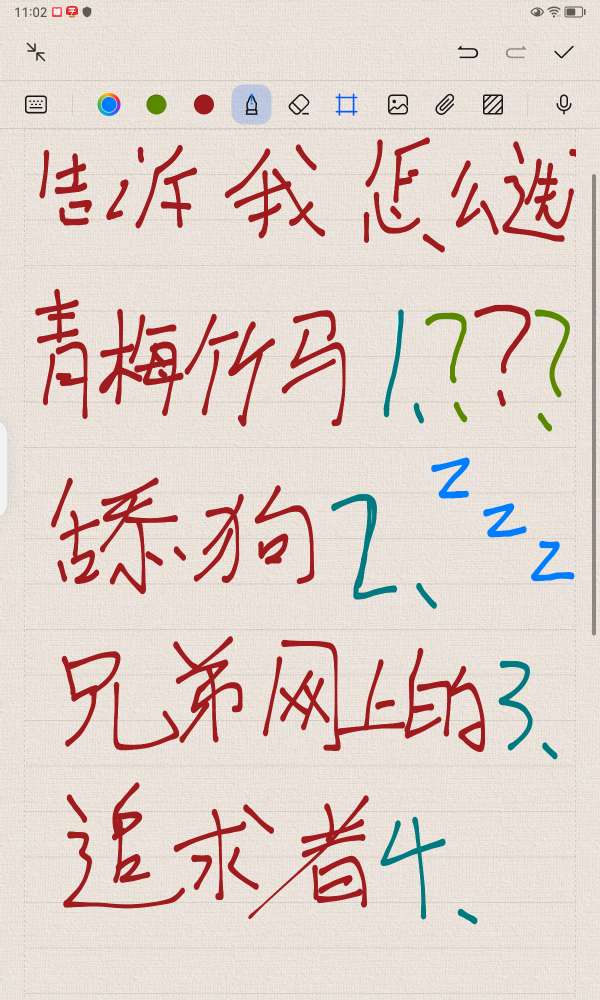 11:02
告诉我怎么选
青梅竹马1、???
舔狗2、zzz
兄弟网上的3、
追求者4、